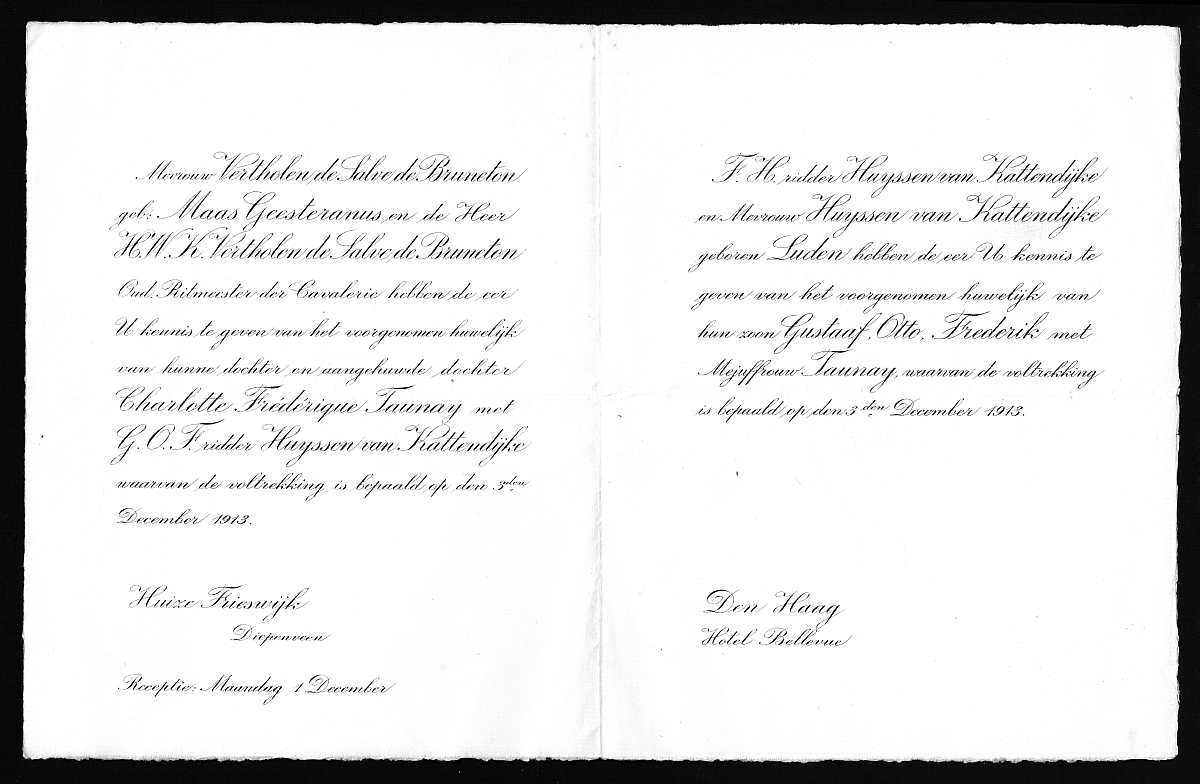 Mevrouw Vertholen de Salve de Bruneton
geb: Maas Geesteranus en de Heer
H.W.K. Vertholen de Salve de Bruneton
Oud. Ritmeester der Cavalerie hebben de eer
U kennis te geven van het voorgenomen huwelijk
van hunne dochter en aangehuwde dochter
Charlotte Frédérique Taunay met
G. O. F. ridder Huyssen van Kattendijke
waarvan de voltrekking is bepaald op den 3den
December 1913.
Huize Frieswijk
Diepenveen
Receptie: Maandag 1 December
F. H. ridder Huyssen van Kattendijke
en Mevrouw Huyssen van Kattendijke
geboren Luden hebben de eer U kennis te
geven van het voorgenomen huwelijk van
hun zoon Gustaaf, Otto, Frederik met
Mejuffrouw Taunay, waarvan de voltrekking
is bepaald op den 3den December 1913.
Den Haag
Hotel Bellevue